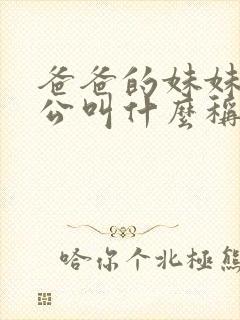 爸爸的妹妹
公叫什麼稱
哈你个北極熊